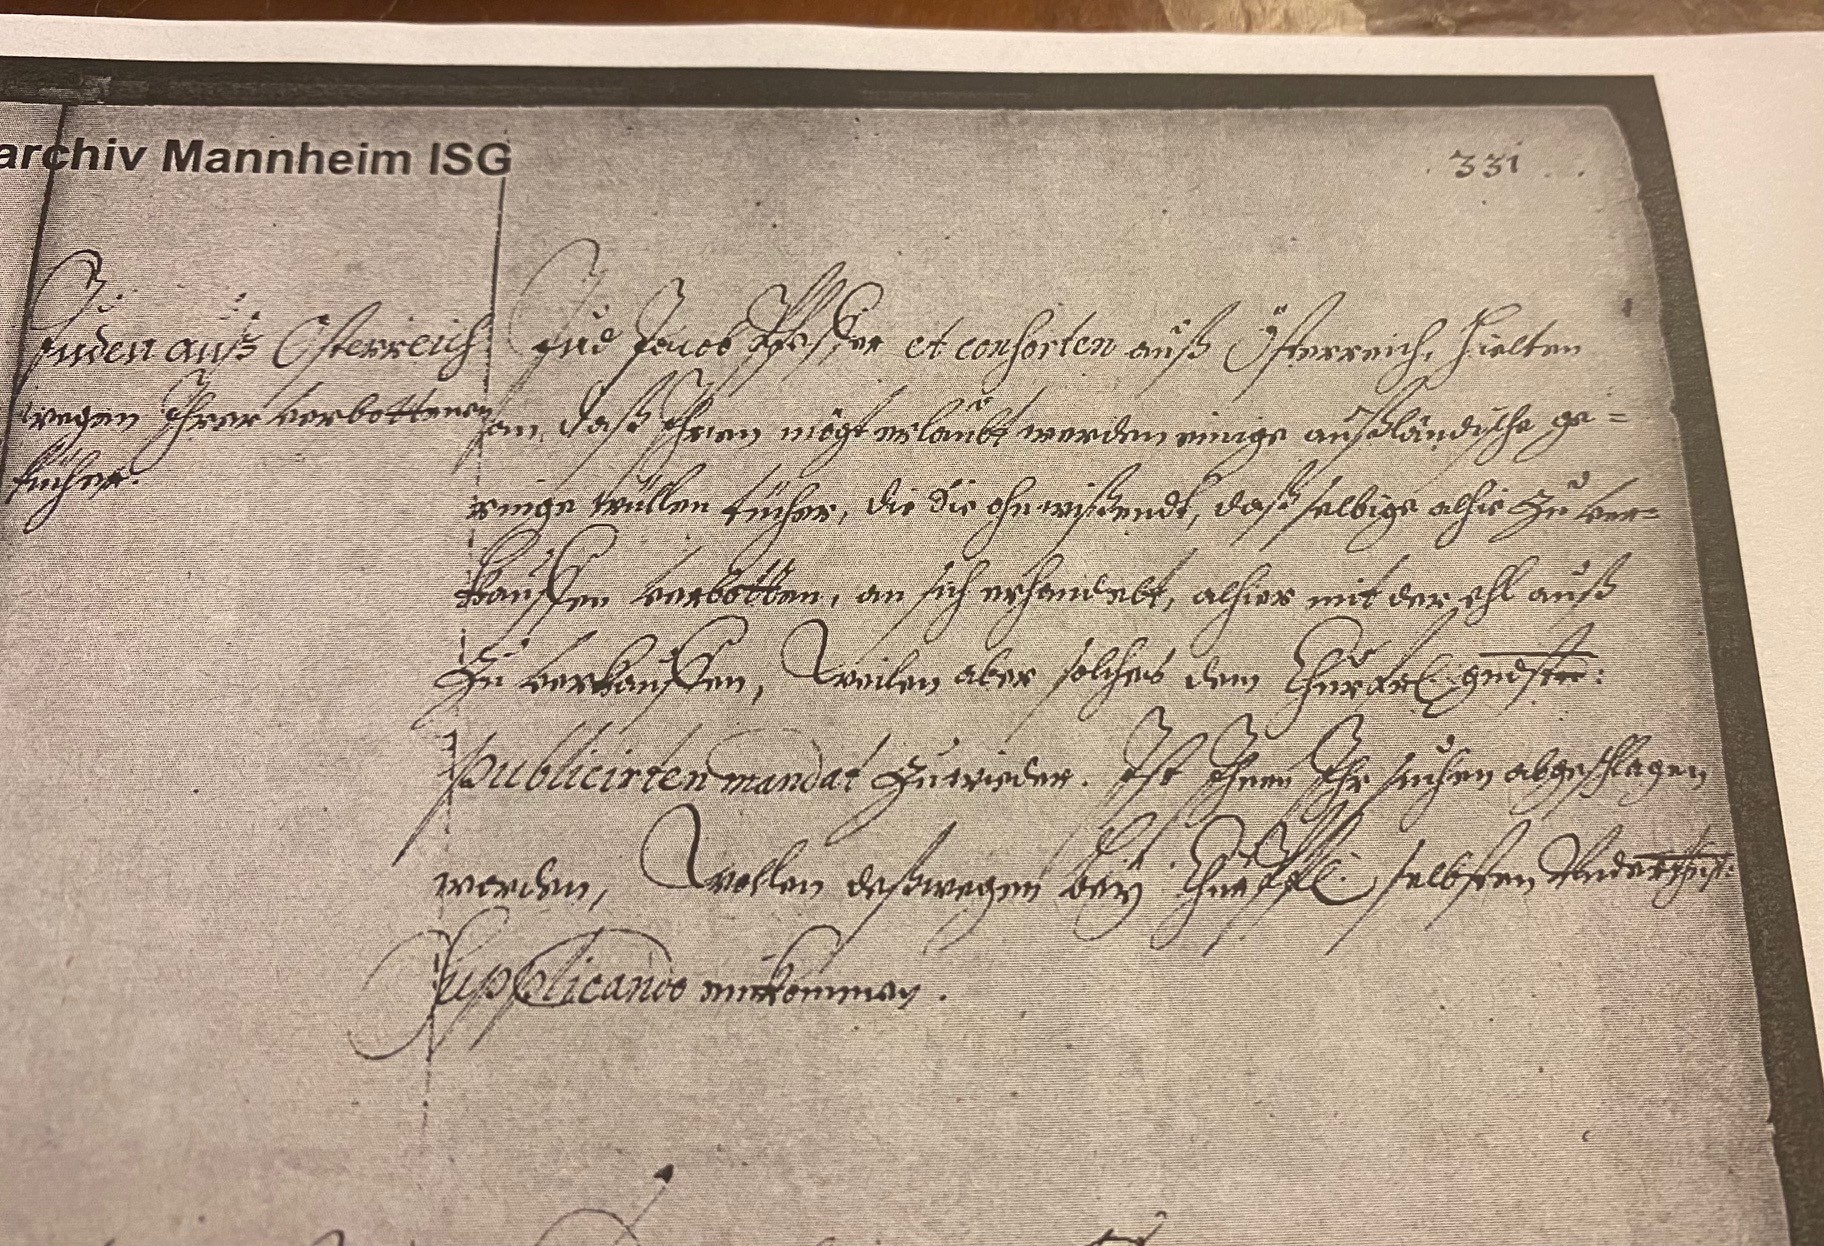 archiv Mannheim ISG
331
Juden auß Österreich
wegen Ihrer verbottenen
tücher.
Jud Jacob et consorten auß Österreich, hielten
an, daß Ihnen mögt erlaubt werden einige außländische ge=
ringe wüllen tücher, die Sie ohnwißendt, daß selbige alhie zu ver=
kauffen verbotten, an sich erhandelt, alhier mit der ehl auß
zu verkauffen, Weilen aber solches dem Churfl. gndst:
publicirten mandat zuwieder. Ist Ihnen Ihr suchen abgeschlagen
worden, Wollen deßwegen bey selbsten Underthst:
supplicando einkommen.